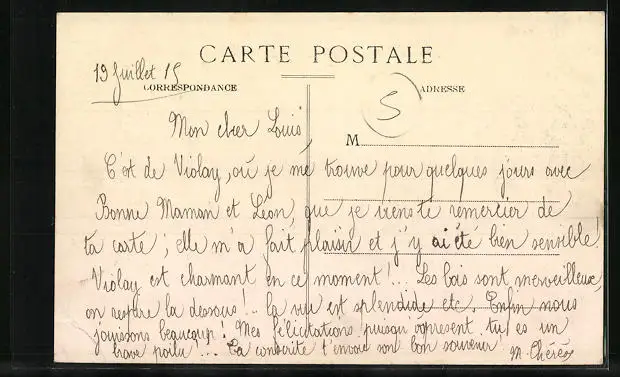 CARTE POSTALE
19 Juillet 15
CORRESPONDANCE
ADRESSE
5
Mon cher Louis,
M
C'est de Violay, où je me trouve pour quelques jours avec
Bonne Maman et Léon, que je viens te remercier de
ta carte ; elle m'a fait plaisir et j'y ai été bien sensible!
Violay est charmant en ce moment!... Les bois sont merveilleux,
on respire la dessous!.. la vue est splendide etc. Enfin nous
jouissons beaucoup! Mes félicitations puisqu'à present tu es un
brave poilu!... Ta conscrite t'envoie son bon souvenir!
M. Thérèse